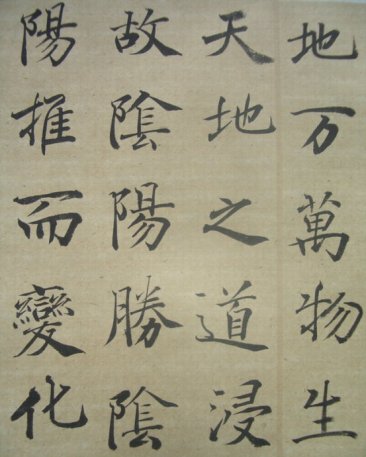 地万萬物生
天地之道浸
故陰陽勝陰
陽推而變化